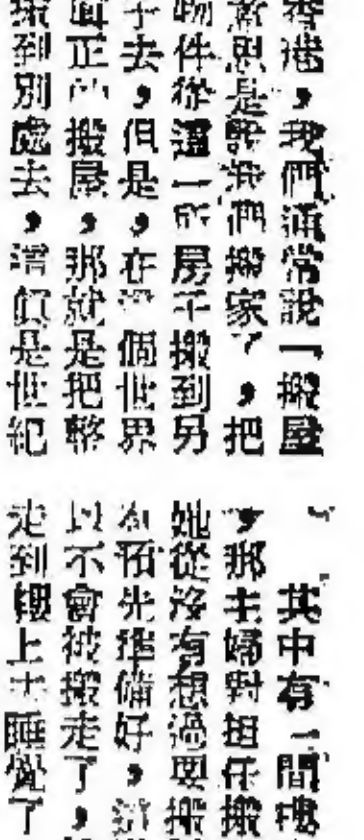 香港，我們通常說「搬屋
意思是說我們搬家了，把
物件從這一所房子搬到另
子去，但是，在這個世界
正的搬屋，那就是把整
搬到別處去，這眞是世紀
其中有一間樓
，那主婦對担任搬
她從沒有想過要搬
有預先準備好，
以不會被搬走了，
走到上去睡覺了